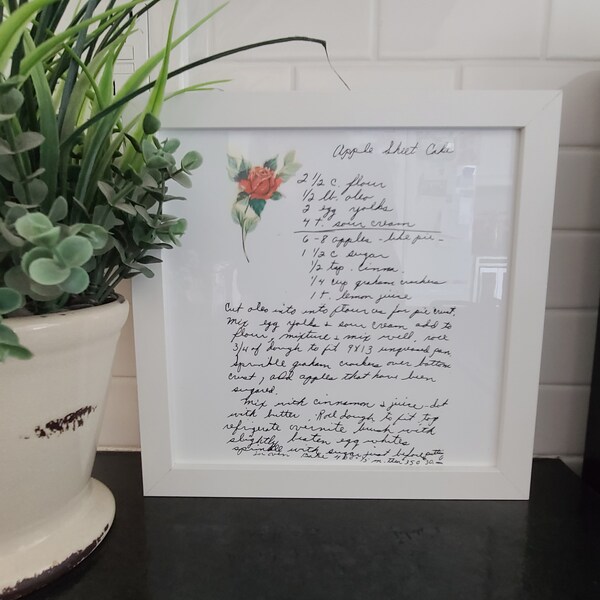 Apple Sheet Cake
2 1/2 c. flour
1/2 lb. oleo
2 egg yolks
4 t. sour cream
6-8 apples - like pie -
1 1/2 c sugar
1/2 tsp. cinna.
1/4 cup graham crackers
1 t. lemon juice
Cut oleo into into flour as for pie crust.
Mix egg yolks & sour cream add to
flour, mixture & mix well. roll
3/4 of dough to fit 9x13 ungreased pan
Sprinkle graham crackers over bottom
crust, add apples that have been
sugared.
Mix with cinnamon & juice - dot
with butter. Roll dough to fit top
refrigerate overnite brush with
slightly beaten egg whites
sprinkle with sugar just before
in oven bake 350